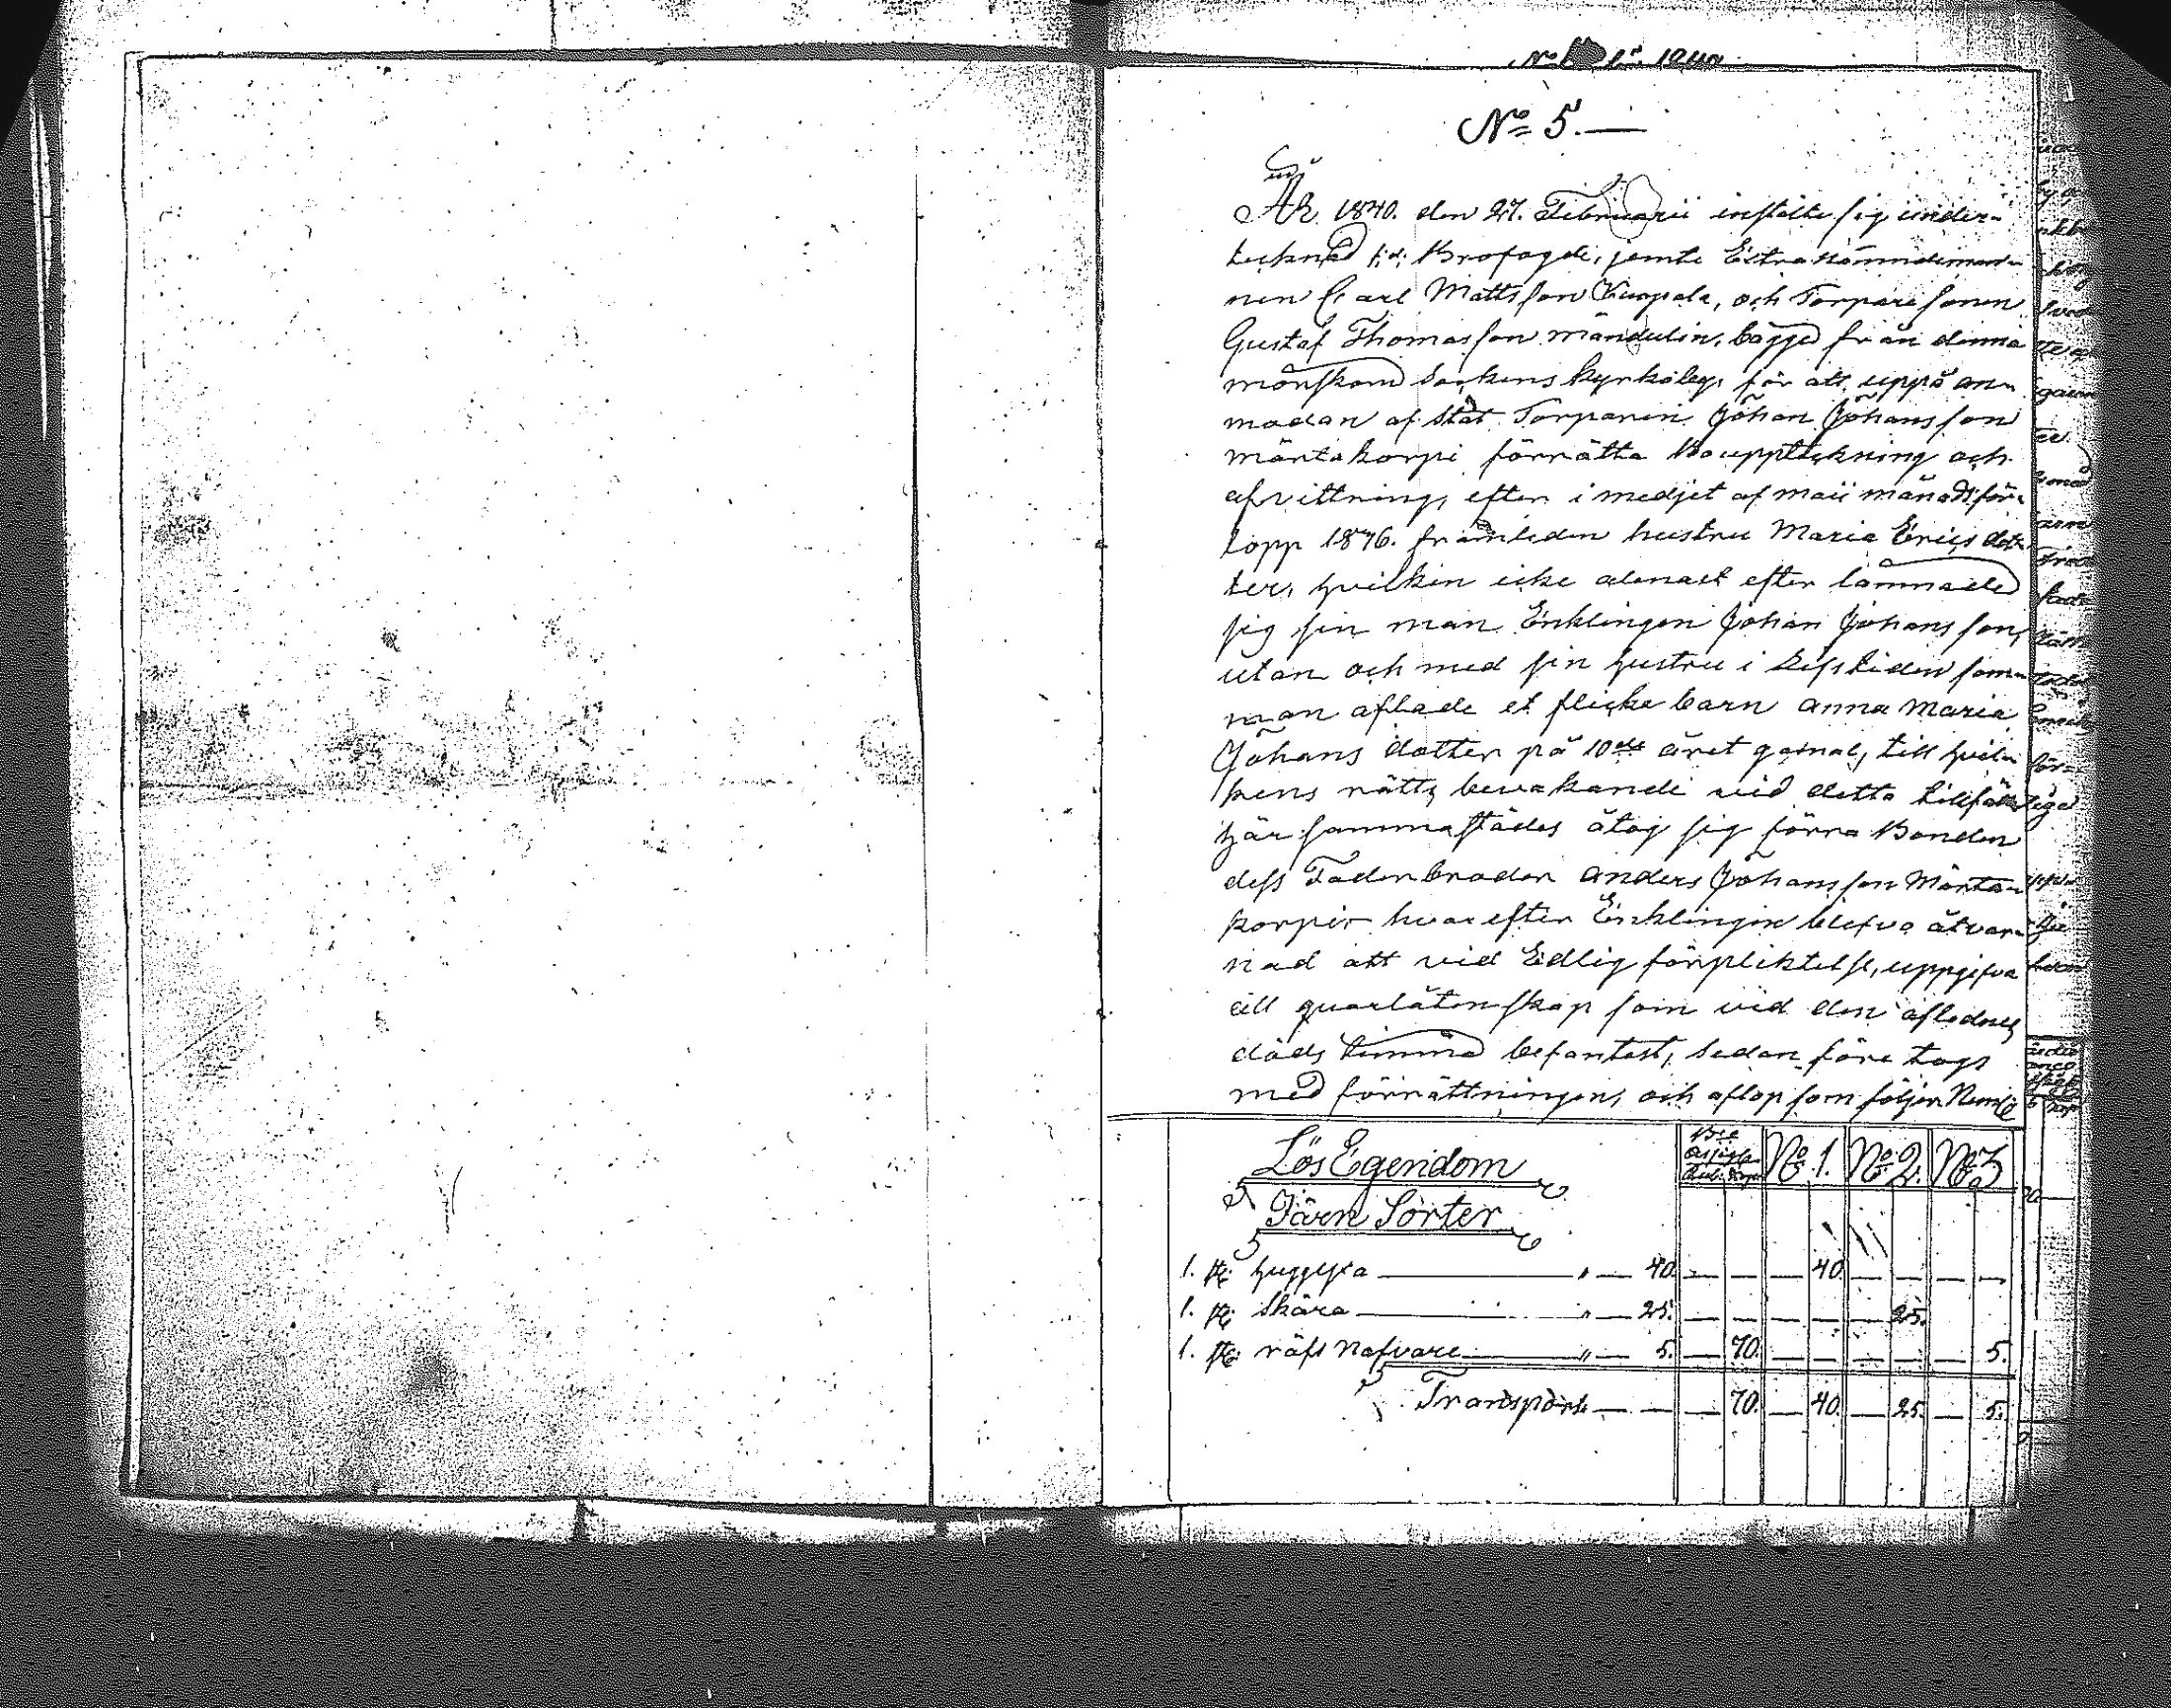 för 1840
No 5.
År 1840. den 27. Februarii instelte sig under-
tecknad f.d. Brofogde, jemte Extra nämndeman-
nen Carl Mattsson Knapala, och Torpare sonen
Gustaf Thomasson mändulin, bägge från denna
sockens kyrkoby, för att uppå an-
modan af Stat Torparen Johan Johansson
märtakorpi förrätta Bouppteckning och
afvittring, efter i medjet af maii månads för-
lopp 1876. framleden hustru Maria Erics dot-
ter, hvilken icke alenast efter lämnade
sig sin man Enklingen Johan Johansson,
utan och med sin hustru i Lifstiden sam-
man aflade et flicke barn anna Maria
Johans dotter på 10de året gamal, till hvil-
kens rätts bevakande vid detta tillfälle
här sammastädes åtog sig förra Bonden
dess Faderbroder anders Johansson Märta-
korpi hvarefter Enklingen blefvo åtvar-
nad att vid Edlig förpliktelse, uppgifva
all quarlåtenskap som vid den aflednes
döds timma befantest, sedan före togs
med förrättningen, och aflop som följer Neml:
Lös Egendom No 1. No 2. No 3
Järn Sorter
1. st: huggyxa " — 40. — — — 40. — — — —
1. st: Skära " — 25. — — — — — 25.
1. st: räfs Nafvare " — 5. — 70. — — — — — 5.
Transport — — — 70. — 40. — 25. — 5.